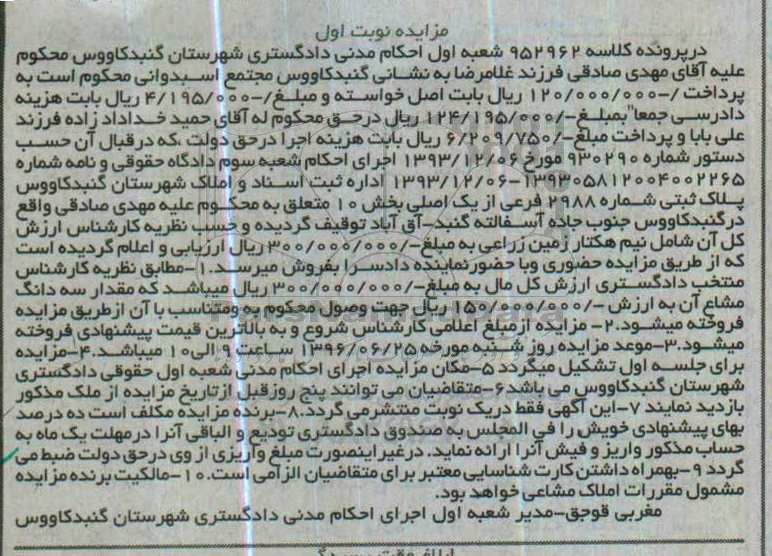 مزایده نوبت اول
درپرونده کلاسه ۹۵۲۹۶۲ شعبه اول احکام مدنی دادگستری شهرستان گنبدکاووس محکوم
علیه آقای مهدی صادقی فرزند غلامرضا به نشانی گنبدکاووس مجتمع اسبدوانی محکوم است به
پرداخت /-۱۲۰/۰۰۰/۰۰۰ ریال بابت اصل خواسته و مبلغ/-۴/۱۹۵/۰۰۰ ریال بابت هزینه
دادرسی جمعا"بمبلغ-/۱۲۴/۱۹۵/۰۰۰ ریال درحق محکوم له آقای حمید خداداد زاده فرزند
علی بابا و پرداخت مبلغ-/۶/۲۰۹/۷۵۰ ریال بابت هزینه اجرا درحق دولت ،که درقبال آن حسب
دستور شماره ۹۳۰۲۹۰ مورخ ۱۳۹۳/۱۲/۰۶ اجرای احکام شعبه سوم دادگاه حقوقی و نامه شماره
۱۳۹۳/۱۲/۰۶-۱۳۹۳۰۵۸۱۲۰۰۴۰۰۲۲۶۵ اداره ثبت اسناد و املاک شهرستان گنبدکاووس
پلاک ثبتی شماره ۲۹۸۸ فرعی از یک اصلی بخش ۱۰ متعلق به محکوم علیه مهدی صادقی واقع
درگنبدکاووس جنوب جاده آسفالته گنبد-آق آباد توقیف گردیده و حسب نظریه کارشناس ارزش
کل آن شامل نیم هکتار زمین زراعی به مبلغ-/۳۰۰/۰۰۰/۰۰۰ ریال ارزیابی و اعلام گردیده است
که از طریق مزایده حضوری وبا حضورنماینده دادسرا بفروش میرسد.۱-مطابق نظریه کارشناس
منتخب دادگستری ارزش کل مال به مبلغ-/۳۰۰/۰۰۰/۰۰۰ ریال میباشد که مقدار سه دانگ
مشاع آن به ارزش -/۱۵۰/۰۰۰/۰۰۰ ریال جهت وصول محکوم به ومتناسب با آن ازطریق مزایده
فروخته میشود.۲- مزایده ازمبلغ اعلامی کارشناس شروع و به بالاترین قیمت پیشنهادی فروخته
میشود.۳-موعد مزایده روز شنبه مورخه ۱۳۹۶/۰۶/۲۵ ساعت ۹ الی۱۰ میباشد.۴-مزایده
برای جلسه اول تشکیل میگردد ۵-مکان مزایده اجرای احکام مدنی شعبه اول حقوقی دادگستری
شهرستان گنبدکاووس می باشد۶-متقاضیان می توانند پنج روزقبل ازتاریخ مزایده از ملک مذکور
بازدید نمایند ۷-این آگهی فقط دریک نوبت منتشرمی گردد.۸-برنده مزایده مکلف است ده درصد
بهای پیشنهادی خویش را فی المجلس به صندوق دادگستری تودیع و الباقی آنرا درمهلت یک ماه به
حساب مذکور واریز و فیش آنرا ارائه نماید. درغیراینصورت مبلغ واریزی از وی درحق دولت ضبط می
گردد ۹-بهمراه داشتن کارت شناسایی معتبر برای متقاضیان الزامی است.۱۰-مالکیت برنده مزایده
مشمول مقررات املاک مشاعی خواهد بود.
مغربی قوجق-مدیر شعبه اول اجرای احکام مدنی دادگستری شهرستان گنبدکاووس